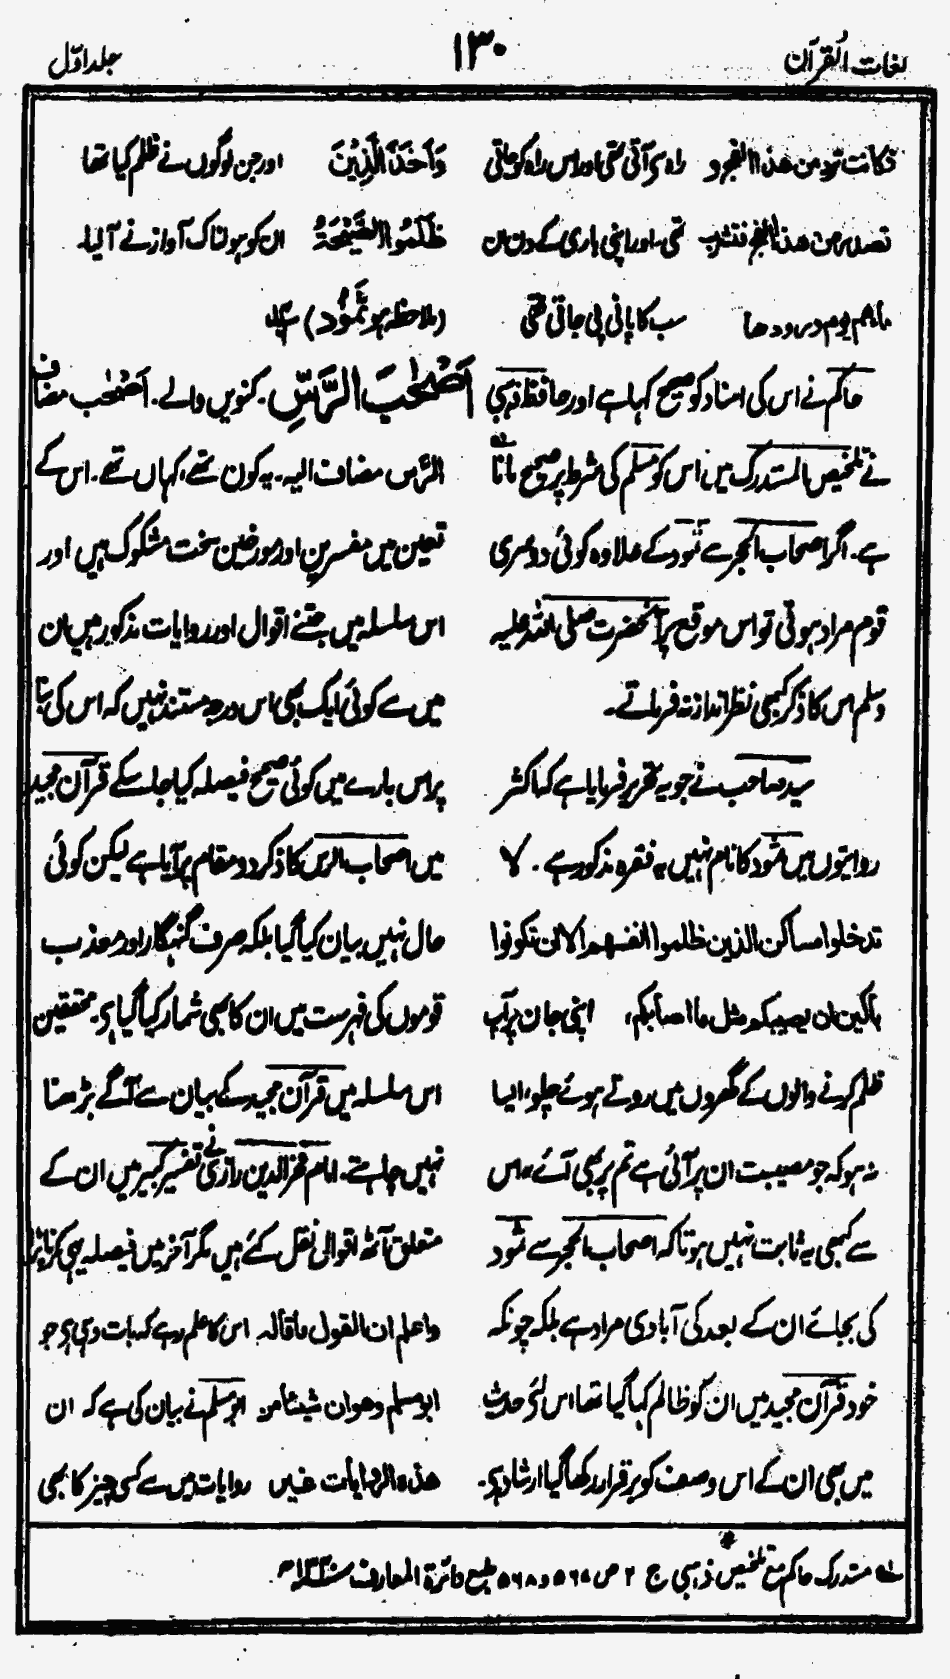 لغات القرآن
۱۳۰
جلد اوّل
فکانت ترد من هذا الفج و راہ سے آتی تھی اور اس راہ کو جاتی
تصدر من هذا الفج فتشرب تھی۔ اور اپنی باری کے دن ان
ماءهم يوم ورودها سب کا پانی پی جاتی تھی
حاکم نے اس کی اسناد کو صحیح کہا ہے اور حافظ ذہبی
نے تلخیص المستدرک میں اس کو مسلم کی شرط پر صحیح مانا
ہے۔ اگر اصحاب الحجر سے ثمود کے علاوہ کوئی دوسری
قوم مراد ہوتی تو اس موقع پر آنحضرت صلی اللہ علیہ
وسلم اس کا ذکر کبھی نظر انداز نہ فرماتے۔
سید صاحب نے جو یہ تحریر فرمایا ہے کہ اکثر
روایتوں میں ثمود کا نام نہیں یہ فقرہ مذکور ہے۔ لا
تدخلوا مساكن الذين ظلموا انفسهم الا ان تكونوا
باكين ان يصيبكم مثل ما اصابكم، اپنی جان پر آپ
ظلم کرنے والوں کے گھروں میں روتے ہوئے چلو، ایسا
نہ ہو کہ جو مصیبت ان پر آئی ہے تم پر بھی آئے، اس
سے کبھی یہ ثابت نہیں ہوتا کہ اصحاب الحجر سے ثمود
کی بجائے ان کے بعد کی آبادی مراد ہے بلکہ چونکہ
خود قرآن مجید میں ان کو ظالم کہا گیا تھا اس لئے حدیث
میں بھی ان کے اس وصف کو برقرار رکھا گیا ارشاد ہے۔
وَاَخَذَ الَّذِیْنَ اور جن لوگوں نے ظلم کیا تھا
ظَلَمُوا الصَّيْحَةُ ان کو ہولناک آواز نے آ لیا۔
(ملاحظہ ہو ثَمُوْد)
اَصْحٰبَ الرَّسِّ۔ کنویں والے۔ اَصْحٰب مضاف
الرَّس مضاف الیہ۔ یہ کون تھے، کہاں تھے۔ اس کے
تعین میں مفسرین اور مورخین سخت مشکوک ہیں اور
اس سلسلہ میں جتنے اقوال اور روایات مذکور ہیں ان
میں سے کوئی ایک بھی اس درجہ مستند نہیں کہ اس کی بنا
پر اس بارے میں کوئی صحیح فیصلہ کیا جا سکے قرآن مجید
میں اصحاب الرس کا ذکر دو مقام پر آیا ہے لیکن کوئی
حال نہیں بیان کیا گیا بلکہ صرف گنہگار اور معذب
قوموں کی فہرست میں ان کا بھی شمار کیا گیا ہے۔ محققین
اس سلسلہ میں قرآن مجید کے بیان سے آگے بڑھنا
نہیں چاہتے۔ امام فخر الدین رازی نے تفسیر کبیر میں ان کے
متعلق آٹھ اقوال نقل کئے ہیں مگر آخر میں فیصلہ یہی کرنا پڑا
واعلم ان القول ما قاله اس کا علم رہے کہ بات وہی ہے جو
ابو مسلم وهو ان شيئا من ابو مسلم نے بیان کی ہے کہ ان
هذه الروايات روایات میں سے کسی چیز کا بھی
مستدرک حاکم مع تلخیص ذہبی ج ۲ ص ۵۶۷ و ۵۶۸ طبع دائرة المعارف